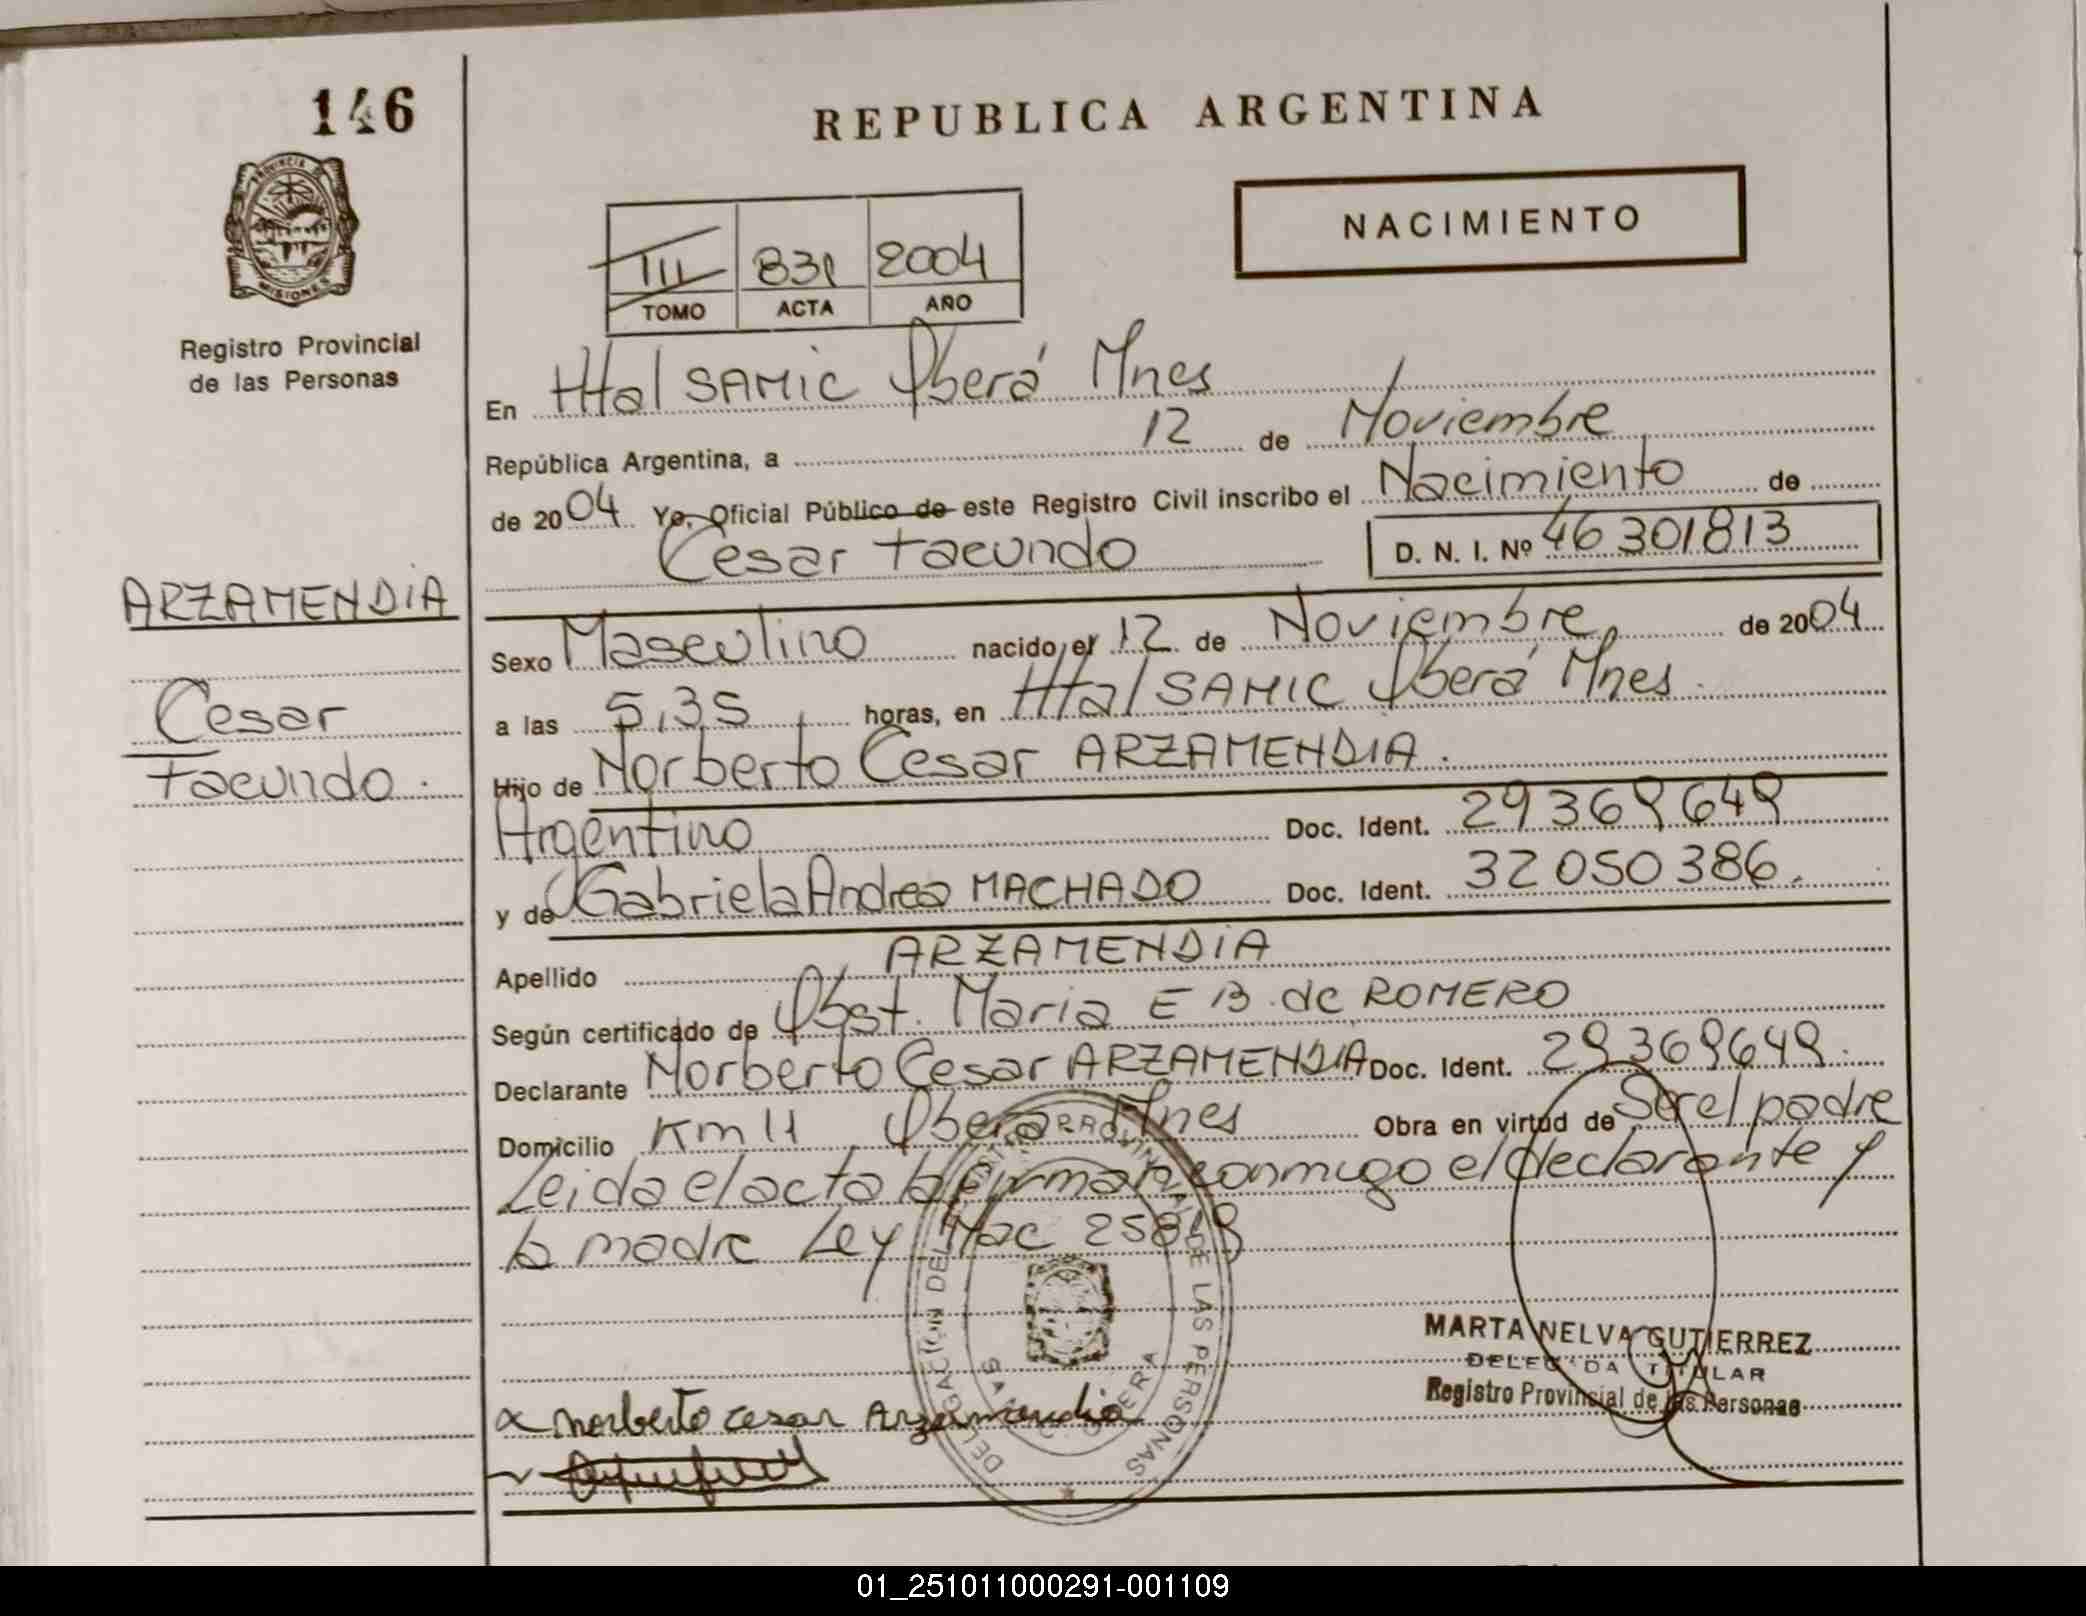 146
REPUBLICA ARGENTINA
PROVINCIA DE
MISIONES
NACIMIENTO
III 831 2004
TOMO ACTA AÑO
Registro Provincial
de las Personas
En Htal SAMIC Oberá Mnes
República Argentina, a 12 de Noviembre
de 2004 Yo, Oficial Público de este Registro Civil inscribo el Nacimiento de
Cesar Facundo D. N. I. Nº 46 301813
ARZAMENDIA
Cesar
Facundo.
Sexo Masculino nacido el 12 de Noviembre de 2004
a las 5,35 horas, en Htal SAMIC Oberá Mnes.
Hijo de Norberto Cesar ARZAMENDIA.
Argentino Doc. Ident. 29369649
y de Gabriela Andrea MACHADO Doc. Ident. 32050386.
Apellido ARZAMENDIA
Según certificado de Obst. Maria E B. de ROMERO
Declarante Norberto Cesar ARZAMENDIA Doc. Ident. 29369649.
Domicilio Km 11 Obera Mnes Obra en virtud de Ser el padre
Leida el acta la firman conmigo el declarante y
la madre Ley Nac
DELEGACION DEL REGISTRO PROVINCIAL DE LAS PERSONAS
OBERA
MARTA NELVA GUTIERREZ
DELEGADA TITULAR
Registro Provincial de las Personas
Norberto cesar Arzamendia
01_251011000291-001109